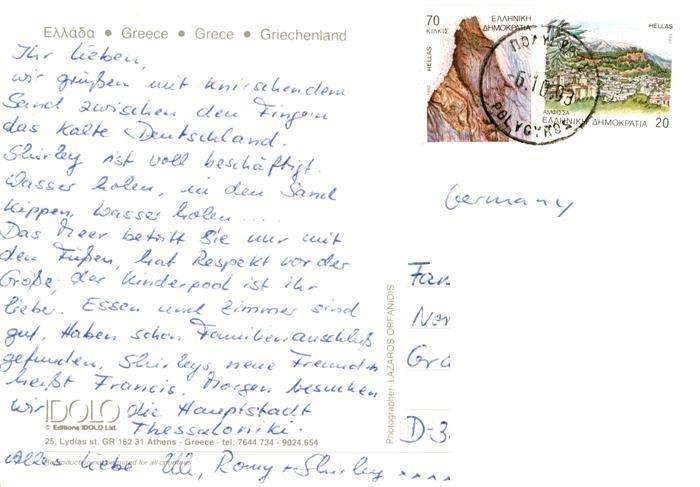 Ελλάδα • Greece • Grece • Griechenland
Ihr Lieben,
wir grüßen mit knirschendem
Sand zwischen den Fingern
das kalte Deutschland.
Shirley ist voll beschäftigt.
Wasser holen, in den Sand
kippen, Wasser holen ....
Das Meer betritt Sie nur mit
den Füßen, hat Respekt vor der
Größe, der Kinderpool ist ihr
lieber. Essen und Zimmer sind
gut. Haben schon Familienanschluß
gefunden, Shirleys neue Freundin
heißt Francis. Morgen besuchen
wir die Hauptstadt
Thessaloniki.
IDOLO
© Editions IDOLO Ltd.
25, Lydias st. GR 162 31 Athens - Greece - tel: 7644 734 - 9024.654
Alles Liebe Uli, Romy + Shirley
for all countries
Photographer: LAZAROS ORFANIDIS
70
ΚΙΛΚΙΣ
ΕΛΛΗΝΙΚΗ
ΔΗΜΟΚΡΑΤΙΑ
HELLAS
HELLAS
ΑΜΦΙΣΣΑ
ΕΛΛΗΝΙΚΗ ΔΗΜΟΚΡΑΤΙΑ
20
POLYGYROS
Germany
Fam
D-3